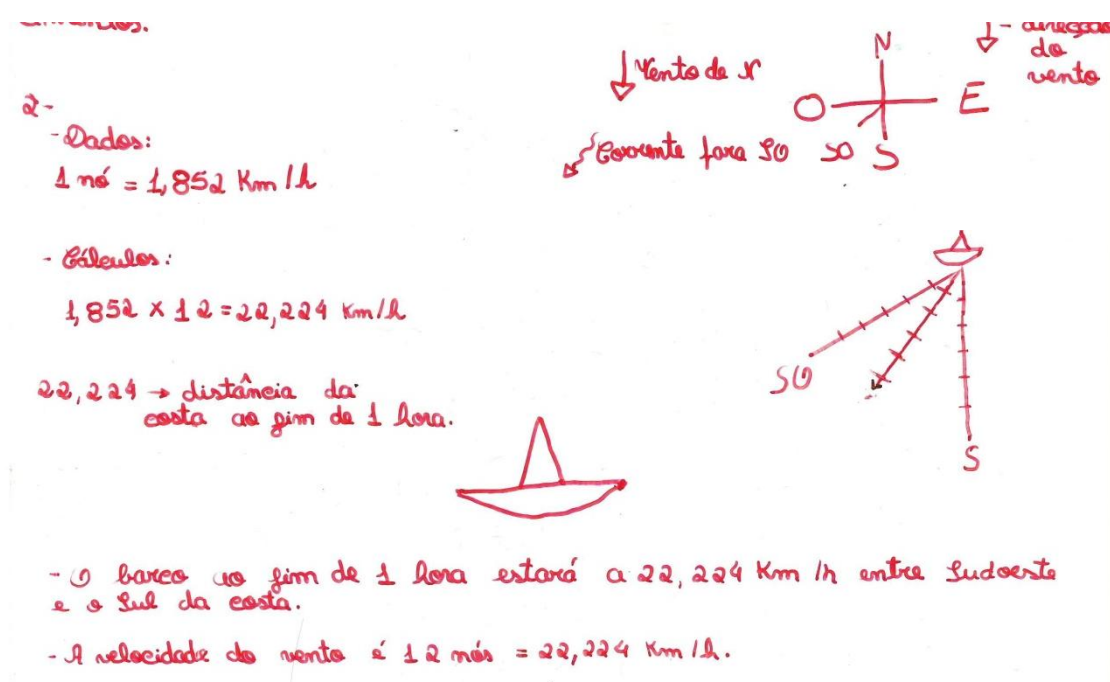 2-
- Dados:
1 nó = 1,852 Km/h
- Cálculos:
1,852 x 12 = 22,224 Km/h
22,224 → distância da
costa ao fim de 1 hora.
Vento de N
Corrente para SO
N
O
E
SO
S
- direcção
do
vento
SO
S
- O barco ao fim de 1 hora estará a 22,224 Km/h entre Sudoeste
e o Sul da costa.
- A velocidade do vento é 12 nós = 22,224 Km/h.